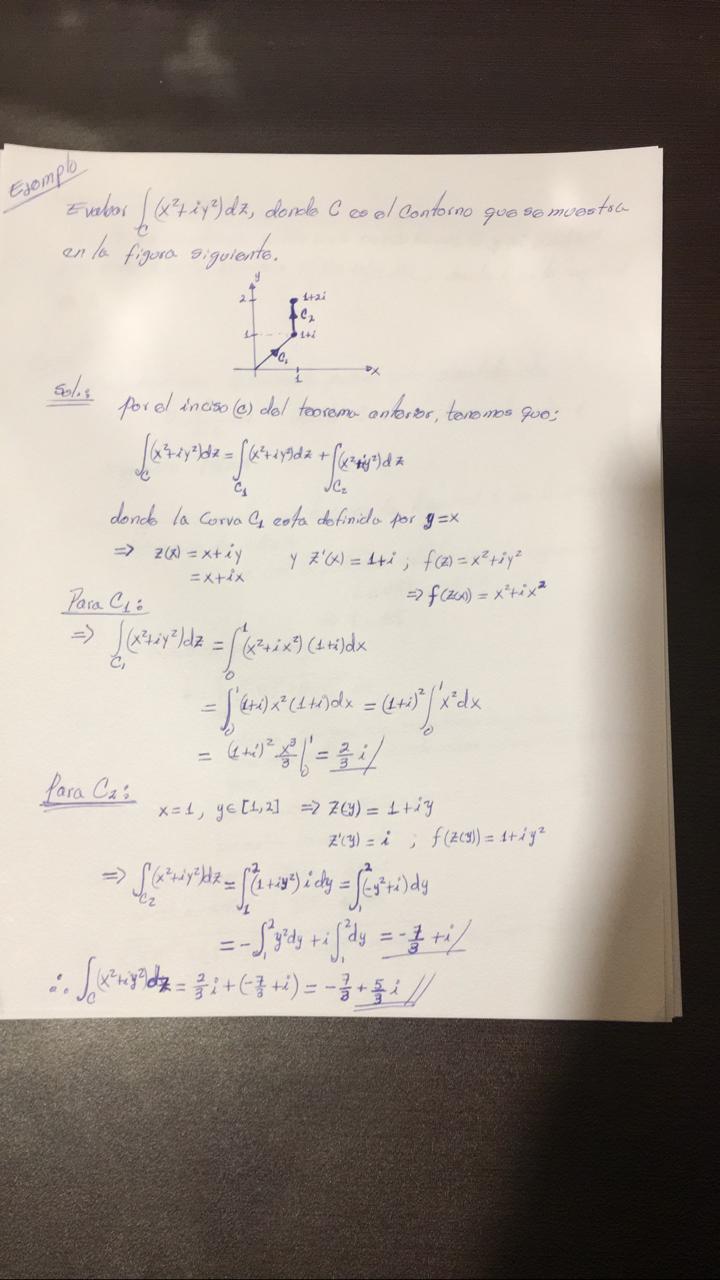 Ejemplo
Evaluar ∫_C (x²+iy²)dz, donde C es el contorno que se muestra
en la figura siguiente.
y
2 1+2i
C₂
1 1+i
C₁
1 x
Sol.:
Por el inciso (c) del teorema anterior, tenemos que:
∫_C (x²+iy²)dz = ∫_C₁ (x²+iy²)dz + ∫_C₂ (x²+iy²)dz
donde la curva C₁ esta definida por y=x
⇒ z(x) = x+iy y z'(x) = 1+i ; f(z) = x²+iy²
= x+ix ⇒ f(z(x)) = x²+ix²
Para C₁:
⇒ ∫_C₁ (x²+iy²)dz = ∫₀¹ (x²+ix²)(1+i)dx
= ∫₀¹ (1+i)x²(1+i)dx = (1+i)² ∫₀¹ x²dx
= (1+i)² x³/3 |₀¹ = 2/3 i/
Para C₂:
x=1, y∈[1,2] ⇒ z(y) = 1+iy
z'(y) = i ; f(z(y)) = 1+iy²
⇒ ∫_C₂ (x²+iy²)dz = ∫₁² (1+iy²) i dy = ∫₁² (-y²+i)dy
= -∫₁² y²dy + i∫₁² dy = -7/3 + i/
∴ ∫_C (x²+iy²)dz = 2/3 i + (-7/3 + i) = -7/3 + 5/3 i //